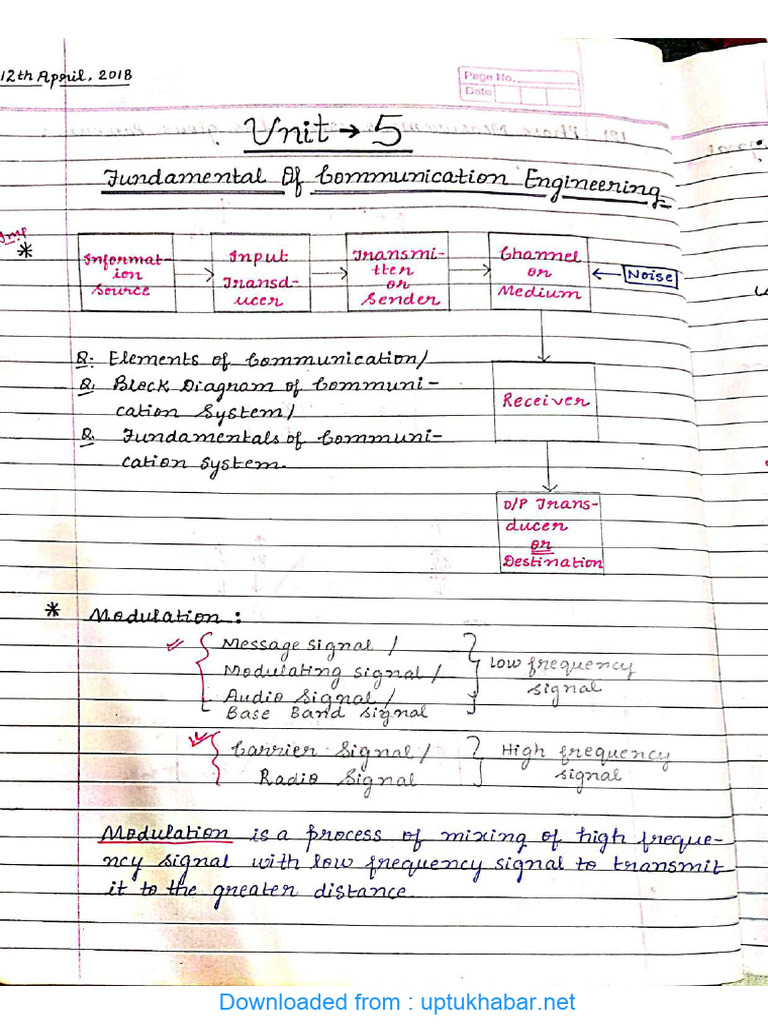 12th April, 2018
Page No.
Date
Unit → 5
Fundamental Of Communication Engineering
Imp
*
Informat-
ion
Source
Input
Transd-
ucer
Transmi-
tter
or
Sender
Channel
or
Medium
Noise
Q: Elements of Communication/
Q. Block Diagram of Communi-
cation System/
Q. Fundamentals of Communi-
cation System.
Receiver
O/P Trans-
ducer
or
Destination
* Modulation :
Message signal /
Modulating signal /
Audio Signal /
Base Band signal
Low frequency
signal
Carrier Signal /
Radio Signal
High frequency
signal
Modulation is a process of mixing of high freque-
ncy signal with low frequency signal to transmit
it to the greater distance.
Downloaded from : uptukhabar.net